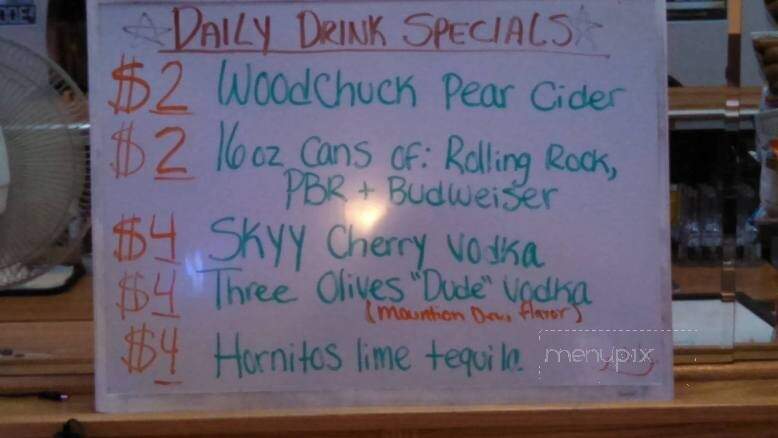 DAILY DRINK SPECIALS
$2 WOODCHUCK Pear Cider
$2 16oz Cans of: Rolling Rock,
PBR + Budweiser
$4 SKYY Cherry Vodka
$4 Three Olives "Dude" Vodka
(Mountian Dew flavor)
$4 Hornitos lime tequila
menupix